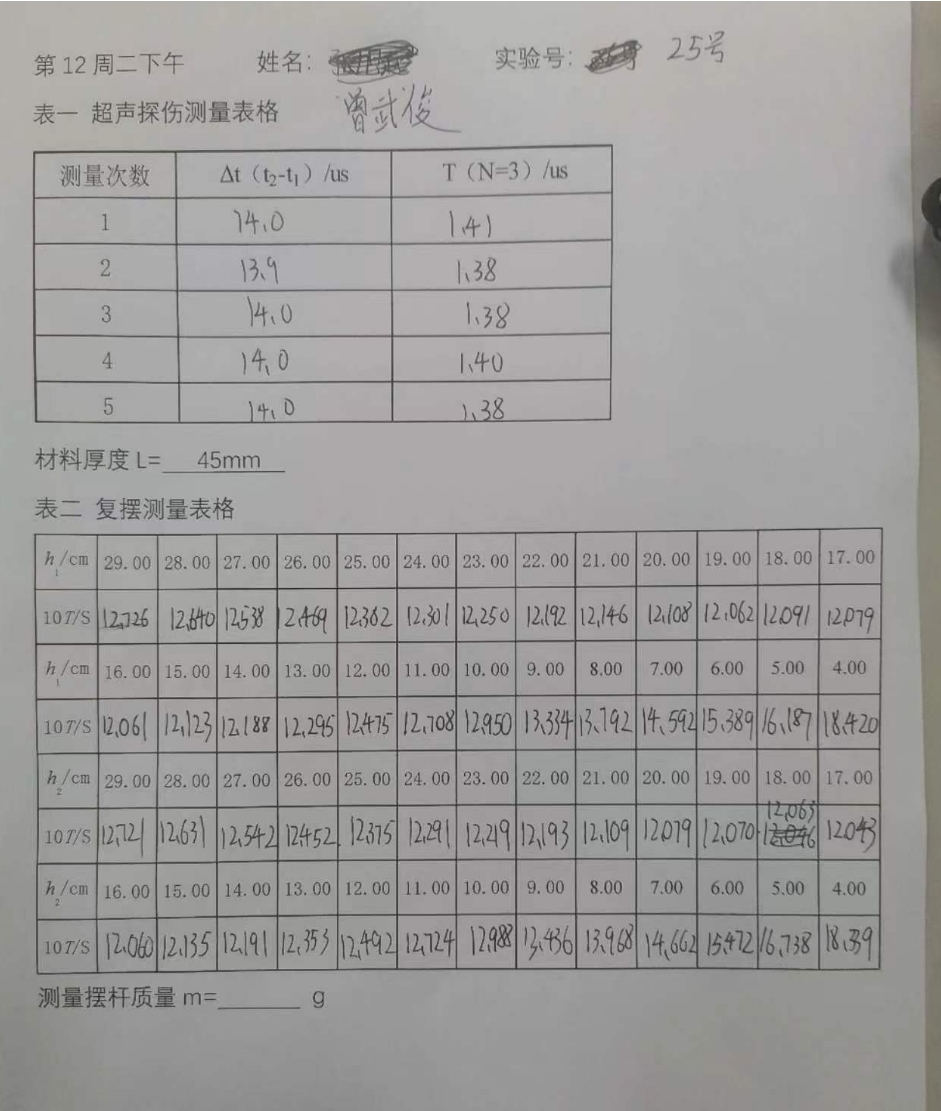 第 12 周二下午 姓名： 实验号： 25号
表一 超声探伤测量表格 曾武俊
测量次数 Δt（t₂-t₁）/us T（N=3）/us
1 14.0 1.41
2 13.9 1.38
3 14.0 1.38
4 14.0 1.40
5 14.0 1.38
材料厚度 L= 45mm
表二 复摆测量表格
h₁/cm 29.00 28.00 27.00 26.00 25.00 24.00 23.00 22.00 21.00 20.00 19.00 18.00 17.00
10T/S 12.726 12.640 12.538 12.469 12.382 12.301 12.250 12.192 12.146 12.108 12.062 12.091 12.079
h₁/cm 16.00 15.00 14.00 13.00 12.00 11.00 10.00 9.00 8.00 7.00 6.00 5.00 4.00
10T/S 12.061 12.123 12.188 12.295 12.475 12.708 12.950 13.334 13.792 14.592 15.389 16.187 18.420
h₂/cm 29.00 28.00 27.00 26.00 25.00 24.00 23.00 22.00 21.00 20.00 19.00 18.00 17.00
10T/S 12.721 12.631 12.542 12.452 12.375 12.291 12.219 12.193 12.109 12.079 12.070 12.063 12.043
h₂/cm 16.00 15.00 14.00 13.00 12.00 11.00 10.00 9.00 8.00 7.00 6.00 5.00 4.00
10T/S 12.060 12.135 12.191 12.353 12.492 12.724 12.988 13.436 13.968 14.662 15.472 16.738 18.339
测量摆杆质量 m=______ g